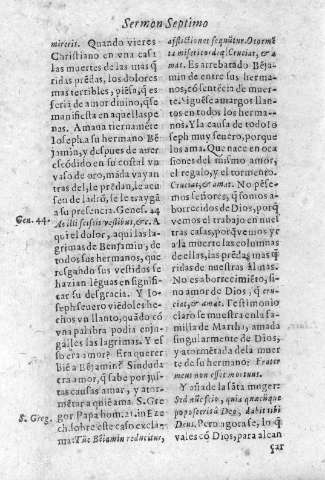 Sermon Septimo
mireris. Quando vieres
Christiano en vna casa
las muertes de las mas q̃
ridas prẽdas, los dolores
mas terribles, piẽsa, q̃ es
feria de amor diuino, q̃ se
manifiesta en aquellas pe
nas. Amaua tiernamẽte
Ioseph a su hermano Bẽ
jamin, y despues de auer
escõdido en su costal vn
vaso de oro, mãda vayan
tras del, le prẽdan, le acu
sen de ladrõ, se le traygã
a su presencia. Genes. 44
Gen. 44.
At illi scissis vestibus, &c. A
qui el dolor, aqui las la-
grimas de Benjamin, de
todos sus hermanos, que
resgando sus vestidos se
hazian lenguas en signifi
car su desgracia. Y Io-
seph seuero viẽdoles he-
chos vn llanto, quãdo cõ
vna palabra podia enju-
galles las lagrimas. Y es
so era amor? Era querer
bien a Bẽjamin? Sin duda
era amor, q̃ sabe por jus-
tas causas amar, y ator-
mẽtar a quiẽ ama. S. Gre
S. Greg.
gor Papa hom. 21. in Eze
ch. sobre este caso excla-
ma: Tũc Bẽjamin reducitur,
afflictiones sequũtur. O torme
ta misericordiæ! Cruciat, & a
mat. Es arrebatado Bẽja-
min de entre sus herma-
nos, cõ sentẽcia de muer-
te. Siguẽse amargos llan-
tos en todos los herma-
nos. Y la causa de todo Io
seph muy seuero, porque
los ama. Que nace en oca
siones del mismo amor,
el regalo, y el tormento.
Cruciat, & amat. No pẽse-
mos señores, q̃ somos a-
borrecidos de Dios, porq̃
vemos el trabajo en nues
tras casas, porque vemos ye
a la muerte las columnas
de ellas, las prẽdas mas q̃
ridas de nuestras almas.
No es aborrecimiẽto, si-
no amor de Dios, q̃ cru-
ciat, & amat. Testimonio
claro se muestra en la fa-
milia de Martha, amada
singularmente de Dios,
y atormẽtada de la muer
te de su hermano: Frater
meus non esset mortuus.
Y añade la sãta muger:
Sed nũc scio, quia quæcũque
poposceris à Deo, dabit tibi
Deus. Pero agora se, lo q̃
vales cõ Dios, para alcan
çar